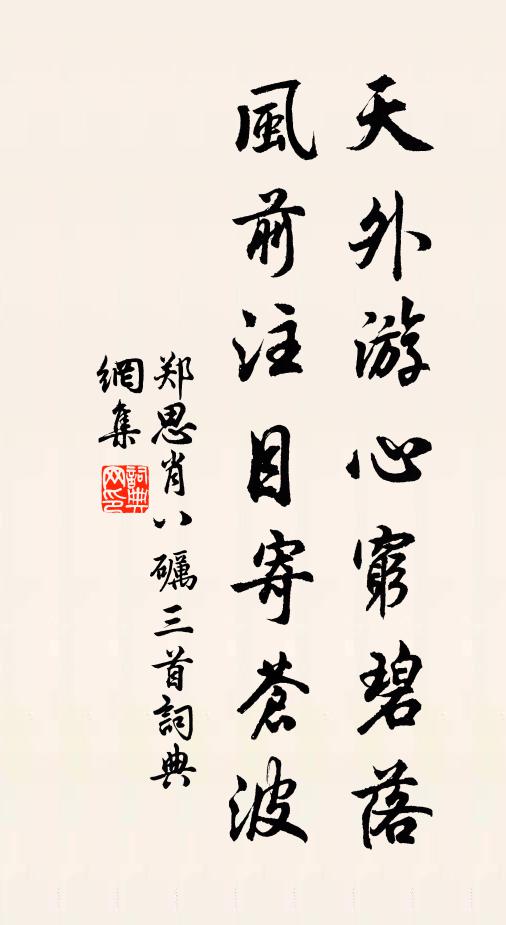 天外游心窮碧落
風前注目寄蒼波
郑思肖八礪三首詞典
網集
詞典网印